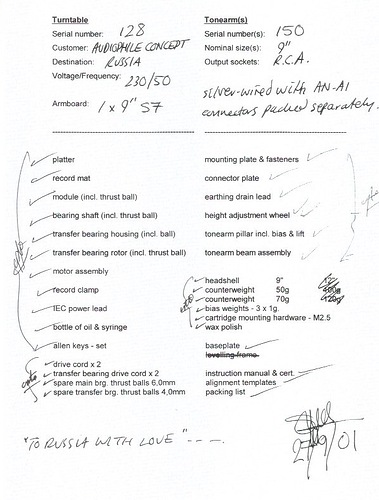 Turntable
Serial number: 128
Customer: AUDIOPHILE CONCEPT
Destination: RUSSIA
Voltage/Frequency: 230/50
Armboard: 1 x 9" S7
Tonearm(s)
Serial number(s): 150
Nominal size(s): 9"
Output sockets: R.C.A.
silver-wired with AN-A1
connectors packed separately.
platter
record mat
module (incl. thrust ball)
bearing shaft (incl. thrust ball)
transfer bearing housing (incl. ball)
transfer bearing rotor (incl. thrust ball)
motor assembly
record clamp
IEC power lead
bottle of oil & syringe
allen keys - set
drive cord x 2
transfer bearing drive cord x 2
spare main brg. thrust balls 6,0mm
spare transfer brg. thrust balls 4,0mm
mounting plate & fasteners
connector plate
earthing drain lead
height adjustment wheel
tonearm pillar incl. bias & lift
tonearm beam assembly
headshell 9" 12"
counterweight 50g 100g
counterweight 70g 120g
bias weights - 3 x 1g.
cartridge mounting hardware - M2.5
wax polish
baseplate
levelling frame
instruction manual & cert.
alignment templates
packing list
"TO RUSSIA WITH LOVE" ----
27/9/01